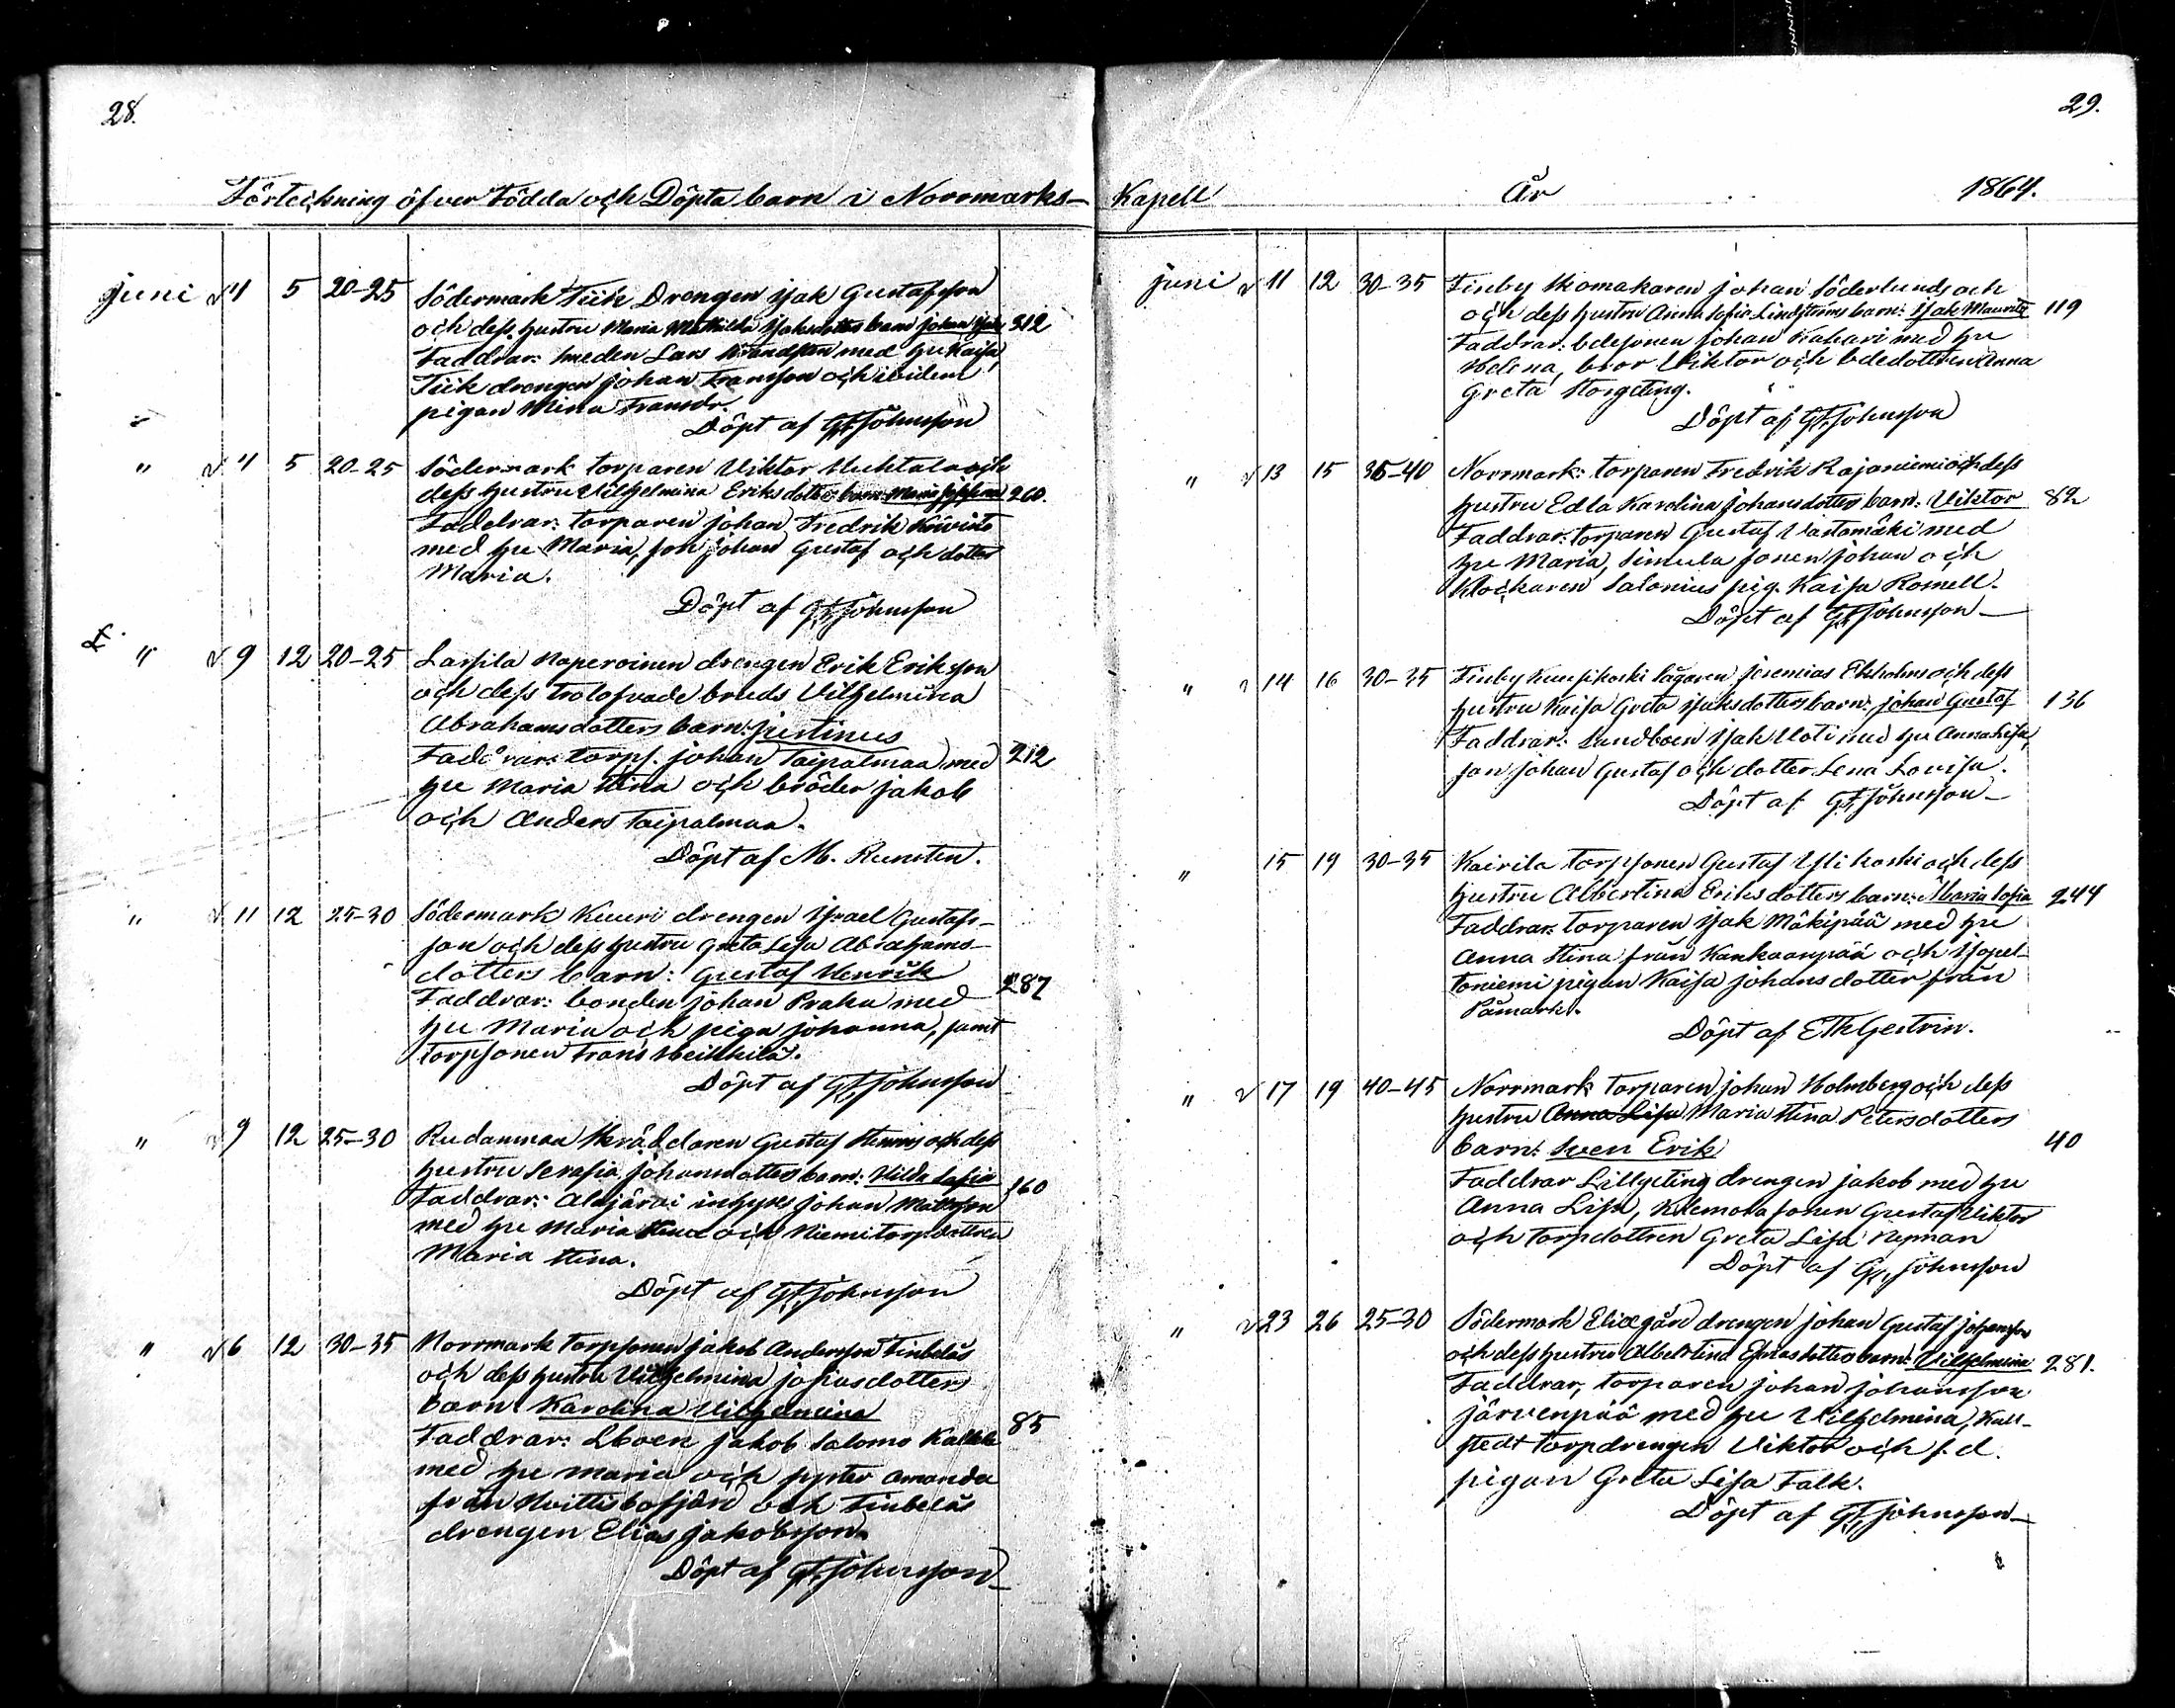 28.
Förteckning öfver Födda och Döpta barn i Norrmarks-
juni 4 5 20-25 Södermark Tiik Drengen Isak Gustafsson
och dess hustru Maria Mathilda Isaksdotters barn Johan 312
Faddrar: smeden Lars Strandsten med hu Kaisa,
Tiik drengen Johan Fransson och ibidem
pigan Mina Fransdr.
Döpt af GF Johnsson
" 4 5 20-25 Södermark torparen Viktor Huhtala och
dess hustru Vilhelmina Eriksdotters barn: Maria Josefina 260.
Faddrar: torparen Johan Fredrik Kivistö
med hu Maria, son Johan Gustaf och dotter
Maria.
Döpt af GF Johnsson
" 9 12 20-25 Lassila Naperoinen drengen Erik Eriksson
och dess trolofvade bruds Vilhelmina
Abrahamsdotters barn: Justinus
Faddrar: torps. Johan Taipalmaa med 212
hu Maria Stina och bröder Jakob
och Anders Taipalmaa.
Döpt af M. Runsten.
" 11 12 25-30 Södermark Kuuri drengen Israel Gustafs-
son och dess hustru Greta Lisa Abrahams-
dotters barn: Gustaf Henrik
Faddrar: bonden Johan Praka med 287
hu Maria och piga Johanna, samt
torpsonen Frans Heikkilä.
Döpt af GF Johnsson
" 9 12 25-30 Rudanmaa Skräddaren Gustaf Stenroos och dess
hustru Serafia Johansdotters barn: Hilda Sofia
Faddrar: Alajärvi inhyses Johan Mattsson 160
med hu Maria Stina och Niemi torpdottren
Maria Stina.
Döpt af GF Johnsson
" 6 12 30-35 Norrmark torpsonen Jakob Andersson Finbelås
och dess hustru Vilhelmina Johansdotters
barn: Karolina Vilhelmina
Faddrar: Lboen Jakob Salomo 85
med hu Maria och syster Amanda
från Hvittisbofjärd och Finbelås
drengen Elias Jakobsson
Döpt af GF Johnsson
29.
Kapell År 1864.
juni 11 12 30-35 Finby skomakaren Johan Söderlunds och
och dess hustru Anna Sofia Lindströms barn: Isak Mauritz 119
Faddrar: bdesonen Johan Kahari med hu
Helena, bror Viktor och bdedottren Anna
Greta Storgeting.
Döpt af GF Johnsson
" 13 15 35-40 Norrmark: torparen Fredrik Rajaniemi och dess
hustru Edla Karolina Johansdotters barn: Viktor 82
Faddrar: torparen Gustaf Vastamäki med
hu Maria, Simula sonen Johan och
klockaren Salonius pig. Kaisa Romell.
Döpt af GF Johnsson
" 14 16 30-35 Finby Kuusikoski sågaren Jeremias Ekholms och dess
hustru Kaisa Greta Isaksdotters barn: Johan Gustaf 136
Faddrar: Landboen Isak Uoti med hu Anna Lisa,
son Johan Gustaf och dotter Lena Lovisa.
Döpt af GF Johnsson
" 15 19 30-35 Kairila torpsonen Gustaf Ylikoski och dess
hustru Albertina Eriksdotters barn: Maria Sofia 244
Faddrar: torparen Isak Mäkipää med hu
Anna Stina från Kankaanpää och Isopel-
toniemi pigan Kaisa Johansdotter från
Påmark.
Döpt af E Th Gestrin.
" 17 19 40-45 Norrmark torparen Johan Holmberg och dess
hustru Anna Lisa Maria Stina Petersdotters
barn: Sven Erik 40
Faddrar Lillgeting drengen Jakob med hu
Anna Lisa, Klemola sonen Gustaf Viktor
och torpdottren Greta Lisa Nyman
Döpt af GF Johnsson
" 23 26 25-30 Södermark Eliægård drengen Johan Gustaf Johansson
och dess hustru Albertina Esaiasdotters barn: Vilhelmina 281.
Faddrar, torparen Johan Johansson
Järvenpää med hu Vilhelmina, Kall-
stedt torpdrengen Viktor och f.d.
pigan Greta Lisa Falk.
Döpt af GF Johnsson